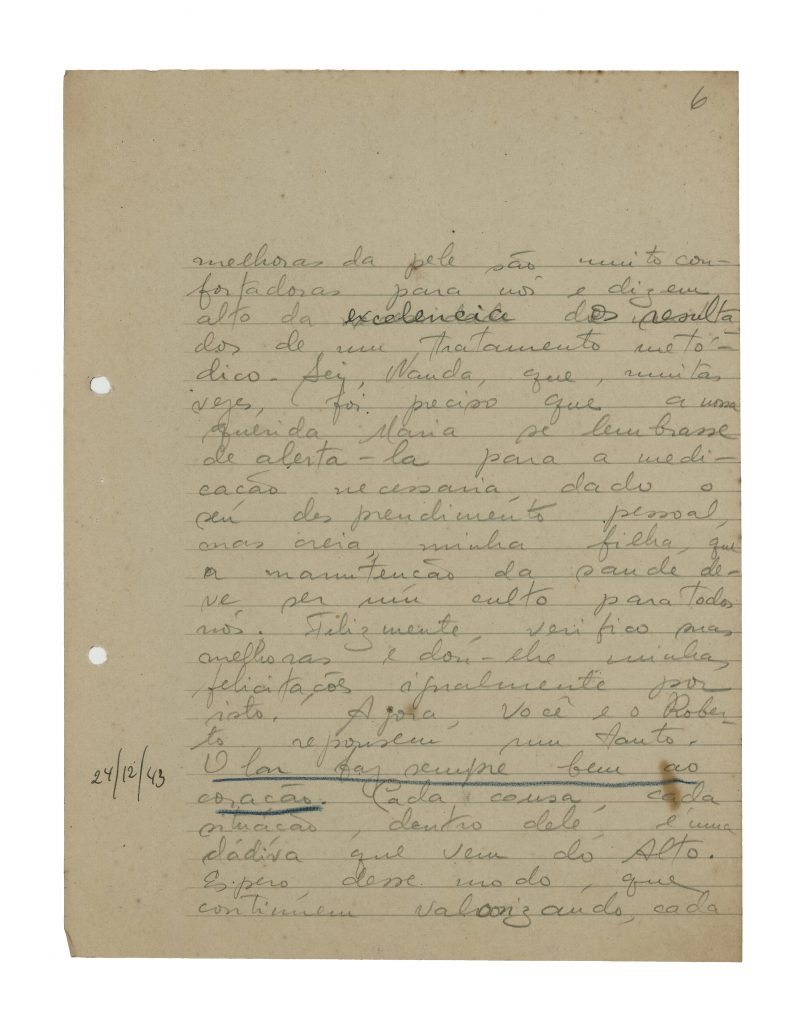 6
melhoras da pele são muito con-
fortadoras para nós e dizem
alto da excelencia dos resulta
dos de um tratamento metó-
dico. Sei, Wanda, que, muitas
vezes, foi preciso que a nossa
querida Maria se lembrasse
de alerta-la para a medi-
cação necessaria, dado o
seu desprendimento pessoal,
mas creia, minha filha, que
a manutenção da saude de-
ve ser um culto para todos
nós. Felizmente, verifico suas
melhoras e dou-lhe minhas
felicitações igualmente por
isto. Agora, você e o Rober-
to repousem um tanto.
24/12/43 O lar faz sempre bem ao
coração. Cada cousa, cada
situação, dentro dele, é uma
dádiva que vem do Alto.
Espero desse modo, que
continúem valorizando, cada